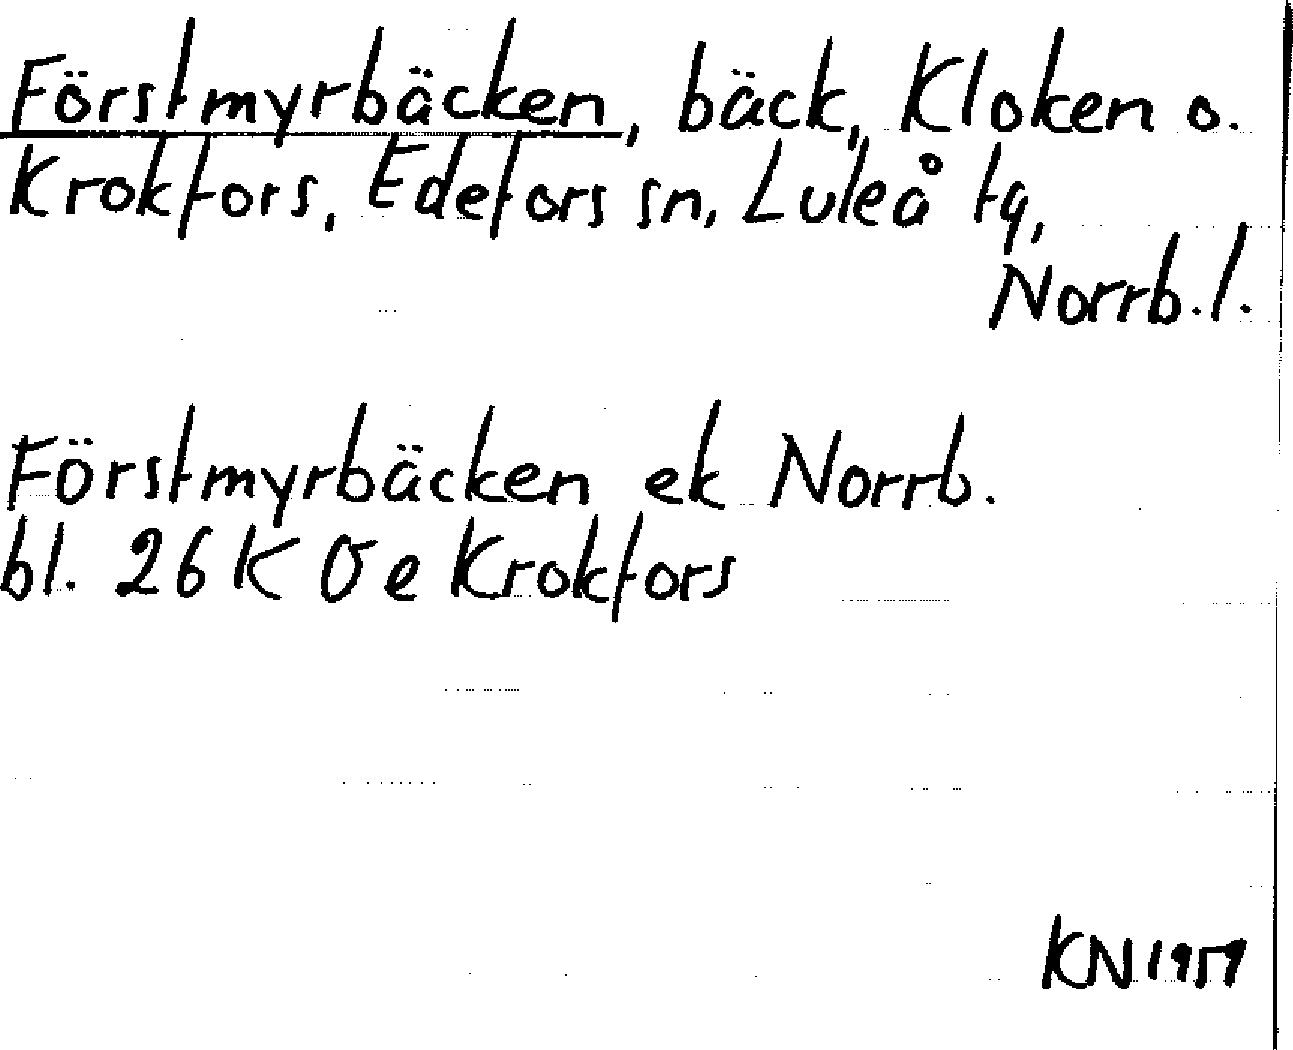 Förstmyrbäcken, bäck, Kloken o.
Krokfors, Edefors sn, Luleå tg,
Norrb. l.
Förstmyrbäcken ek Norrb.
bl. 26 K Ö e Krokfors
KN 1959